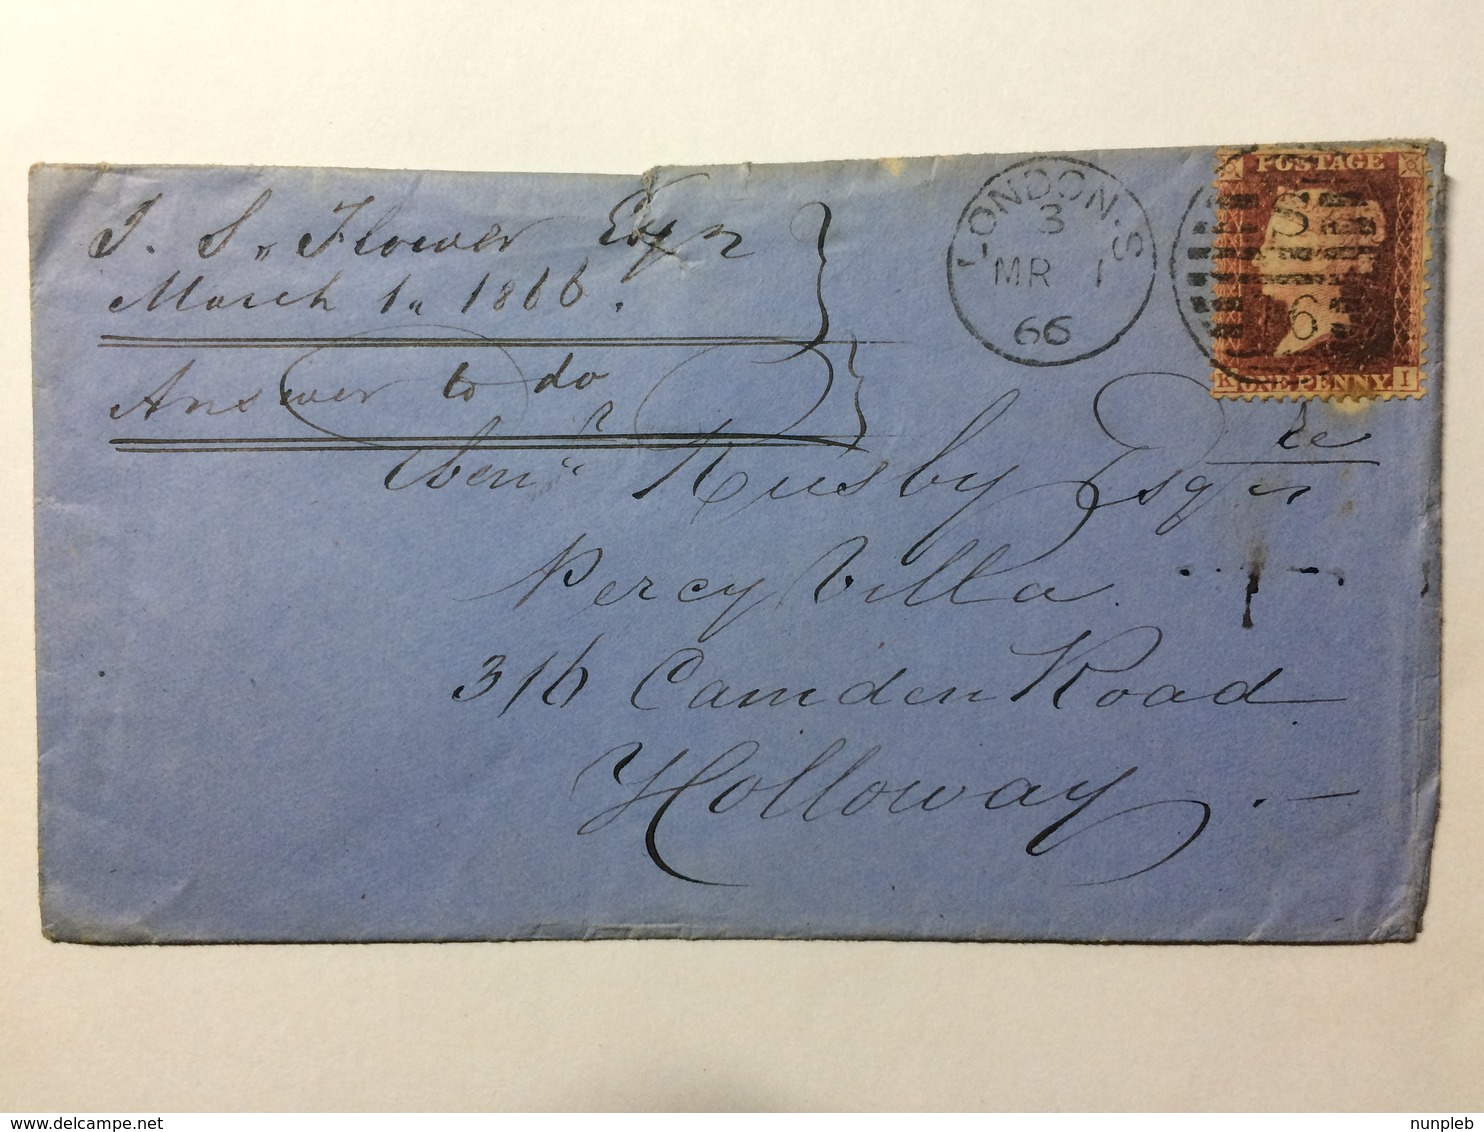 J. S. Flower Esqr
March 1. 1866.
Answer to do
LONDON.S
3
MR 1
66
S
16
POSTAGE
K ONE PENNY. I
Ebenr Rusby Esqre
Percy Villa
316 Camden Road
Holloway. -
© Delcampe
nunpleb